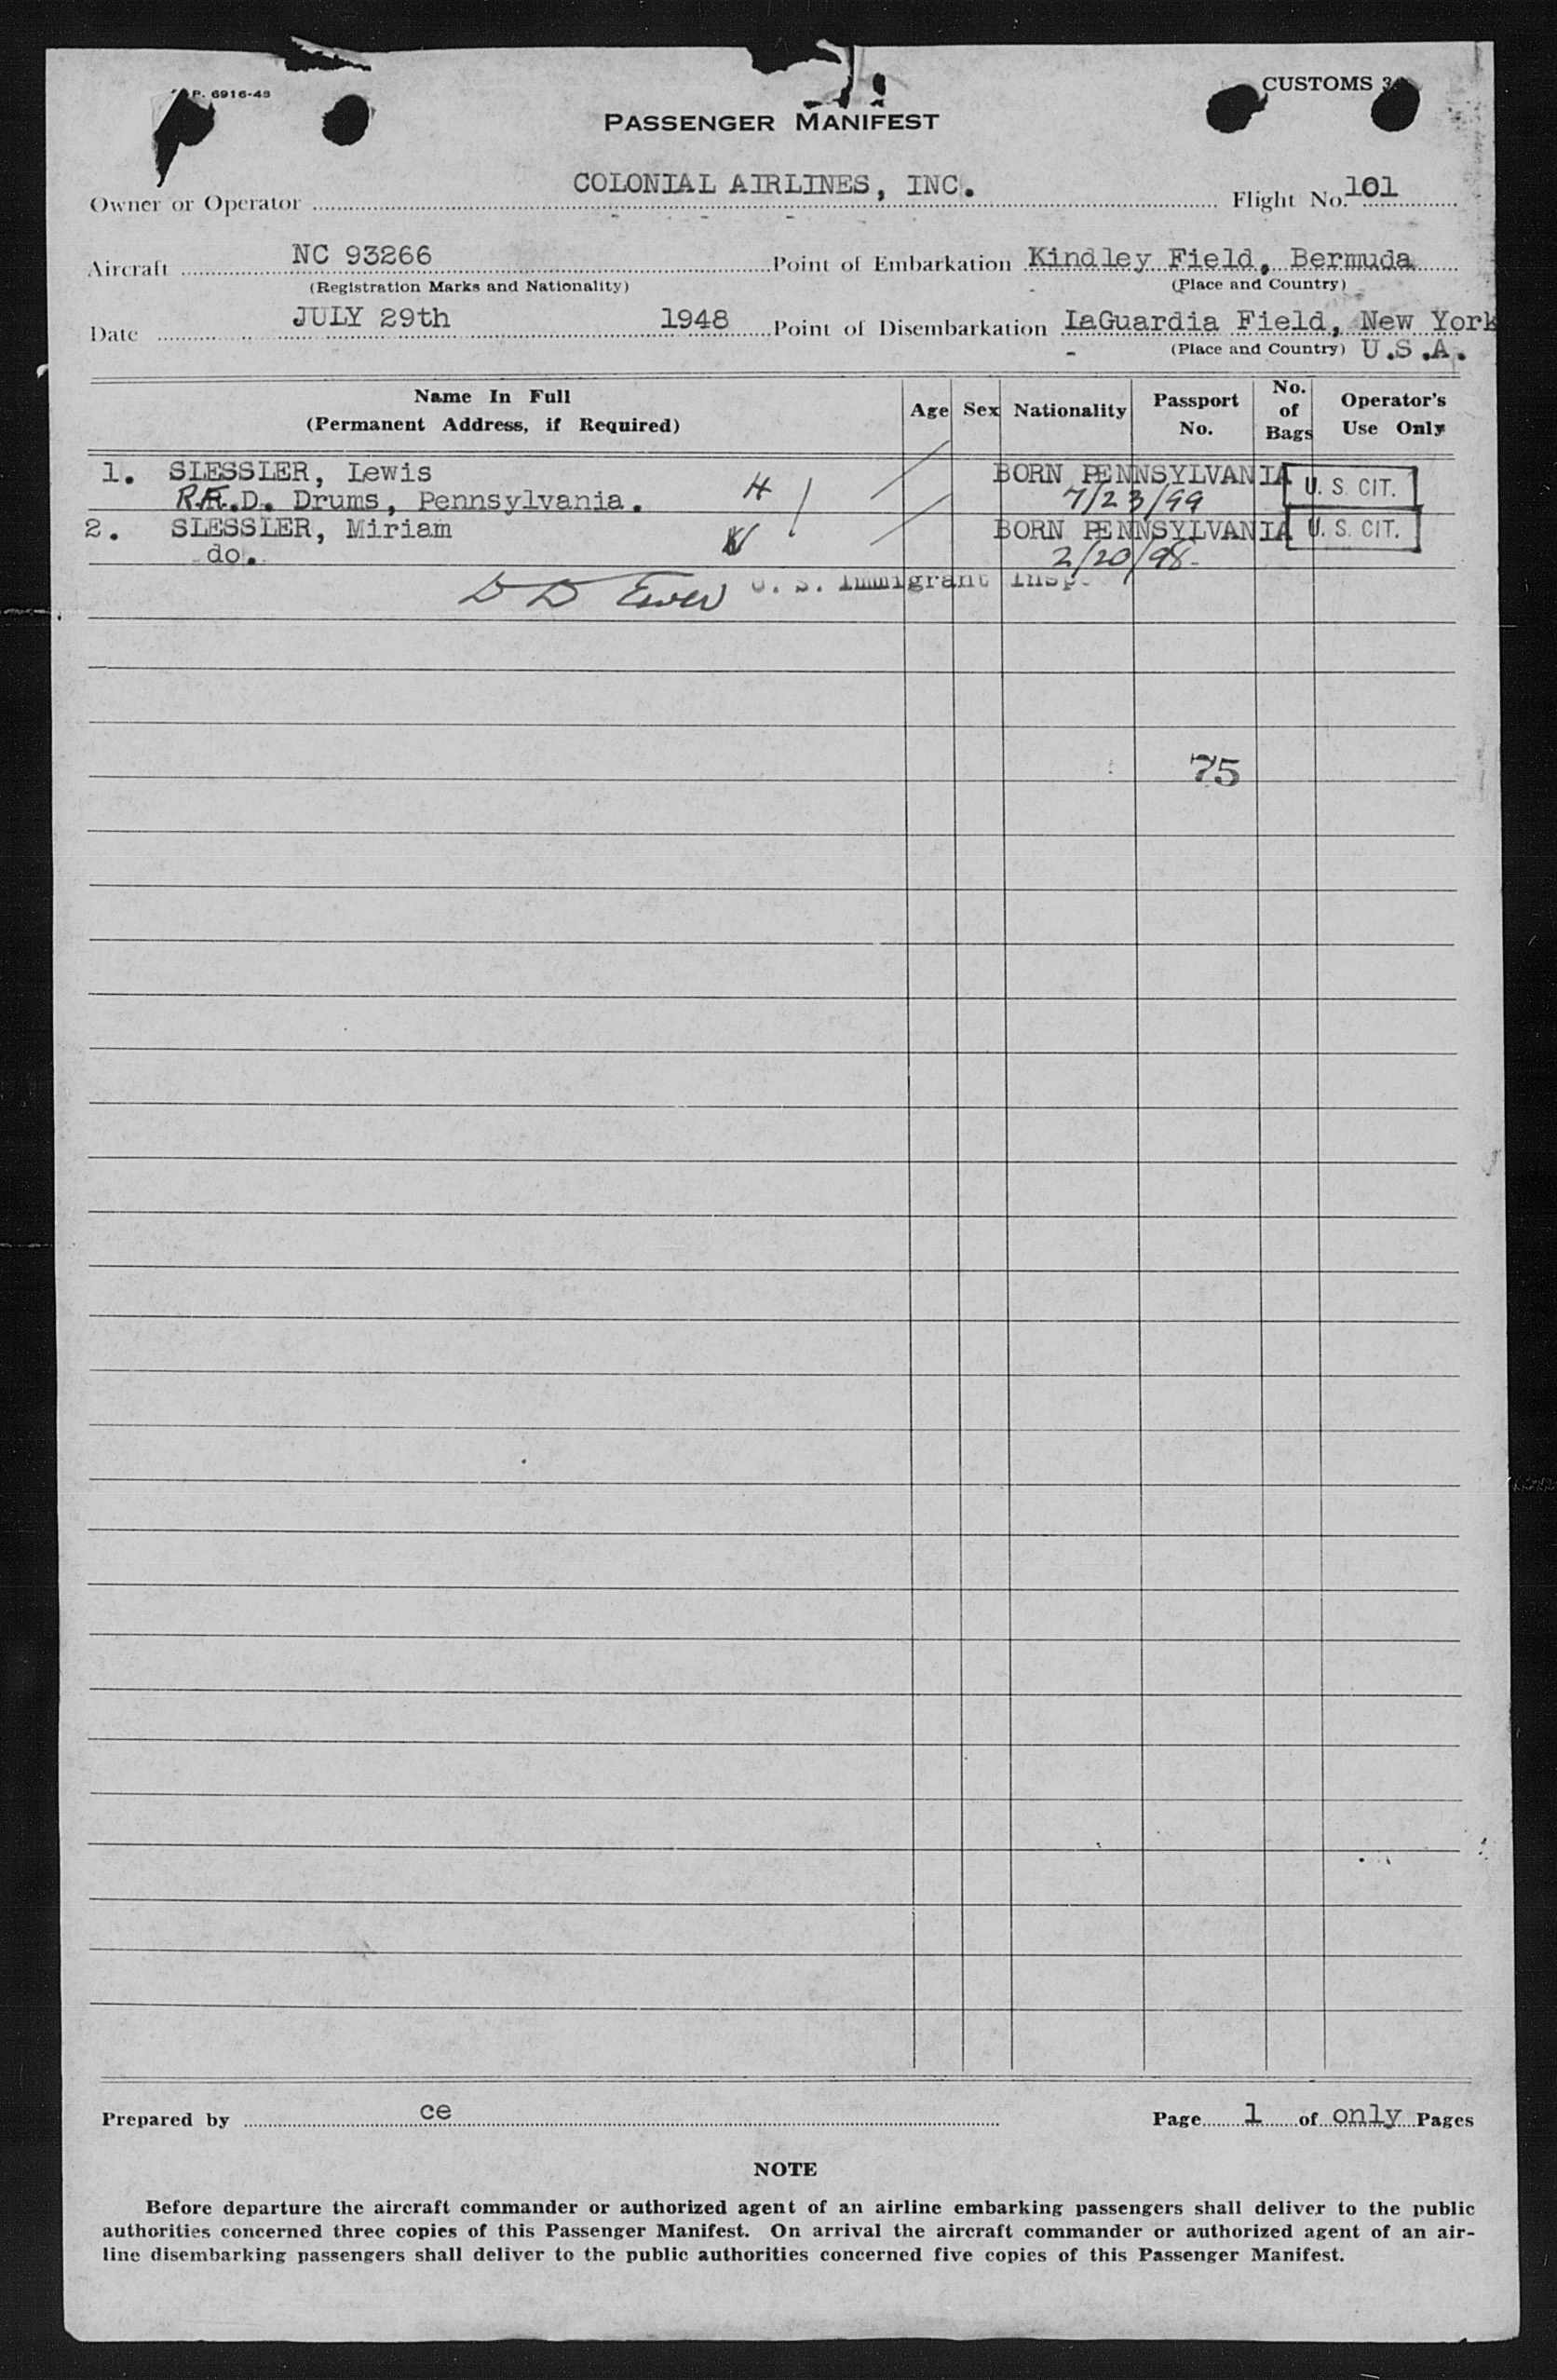 P. 6916-48
CUSTOMS
PASSENGER MANIFEST
Owner or Operator COLONIAL AIRLINES, INC. Flight No. 101
Aircraft NC 93266 Point of Embarkation Kindley Field, Bermuda
(Registration Marks and Nationality) (Place and Country)
Date JULY 29th 1948 Point of Disembarkation LaGuardia Field, New York
(Place and Country) U.S.A.
Name In Full (Permanent Address, if Required) Age Sex Nationality Passport No. No. of Bags Operator's Use Only
1. SLESSLER, Lewis BORN PENNSYLVANIA U. S. CIT.
R.F.D. Drums, Pennsylvania. H 7/23/99
2. SLESSLER, Miriam W BORN PENNSYLVANIA U. S. CIT.
do. 2/20/98
D D U. S. Immigrant Insp.
75
Prepared by ce Page 1 of only Pages
NOTE
Before departure the aircraft commander or authorized agent of an airline embarking passengers shall deliver to the public
authorities concerned three copies of this Passenger Manifest. On arrival the aircraft commander or authorized agent of an air-
line disembarking passengers shall deliver to the public authorities concerned five copies of this Passenger Manifest.